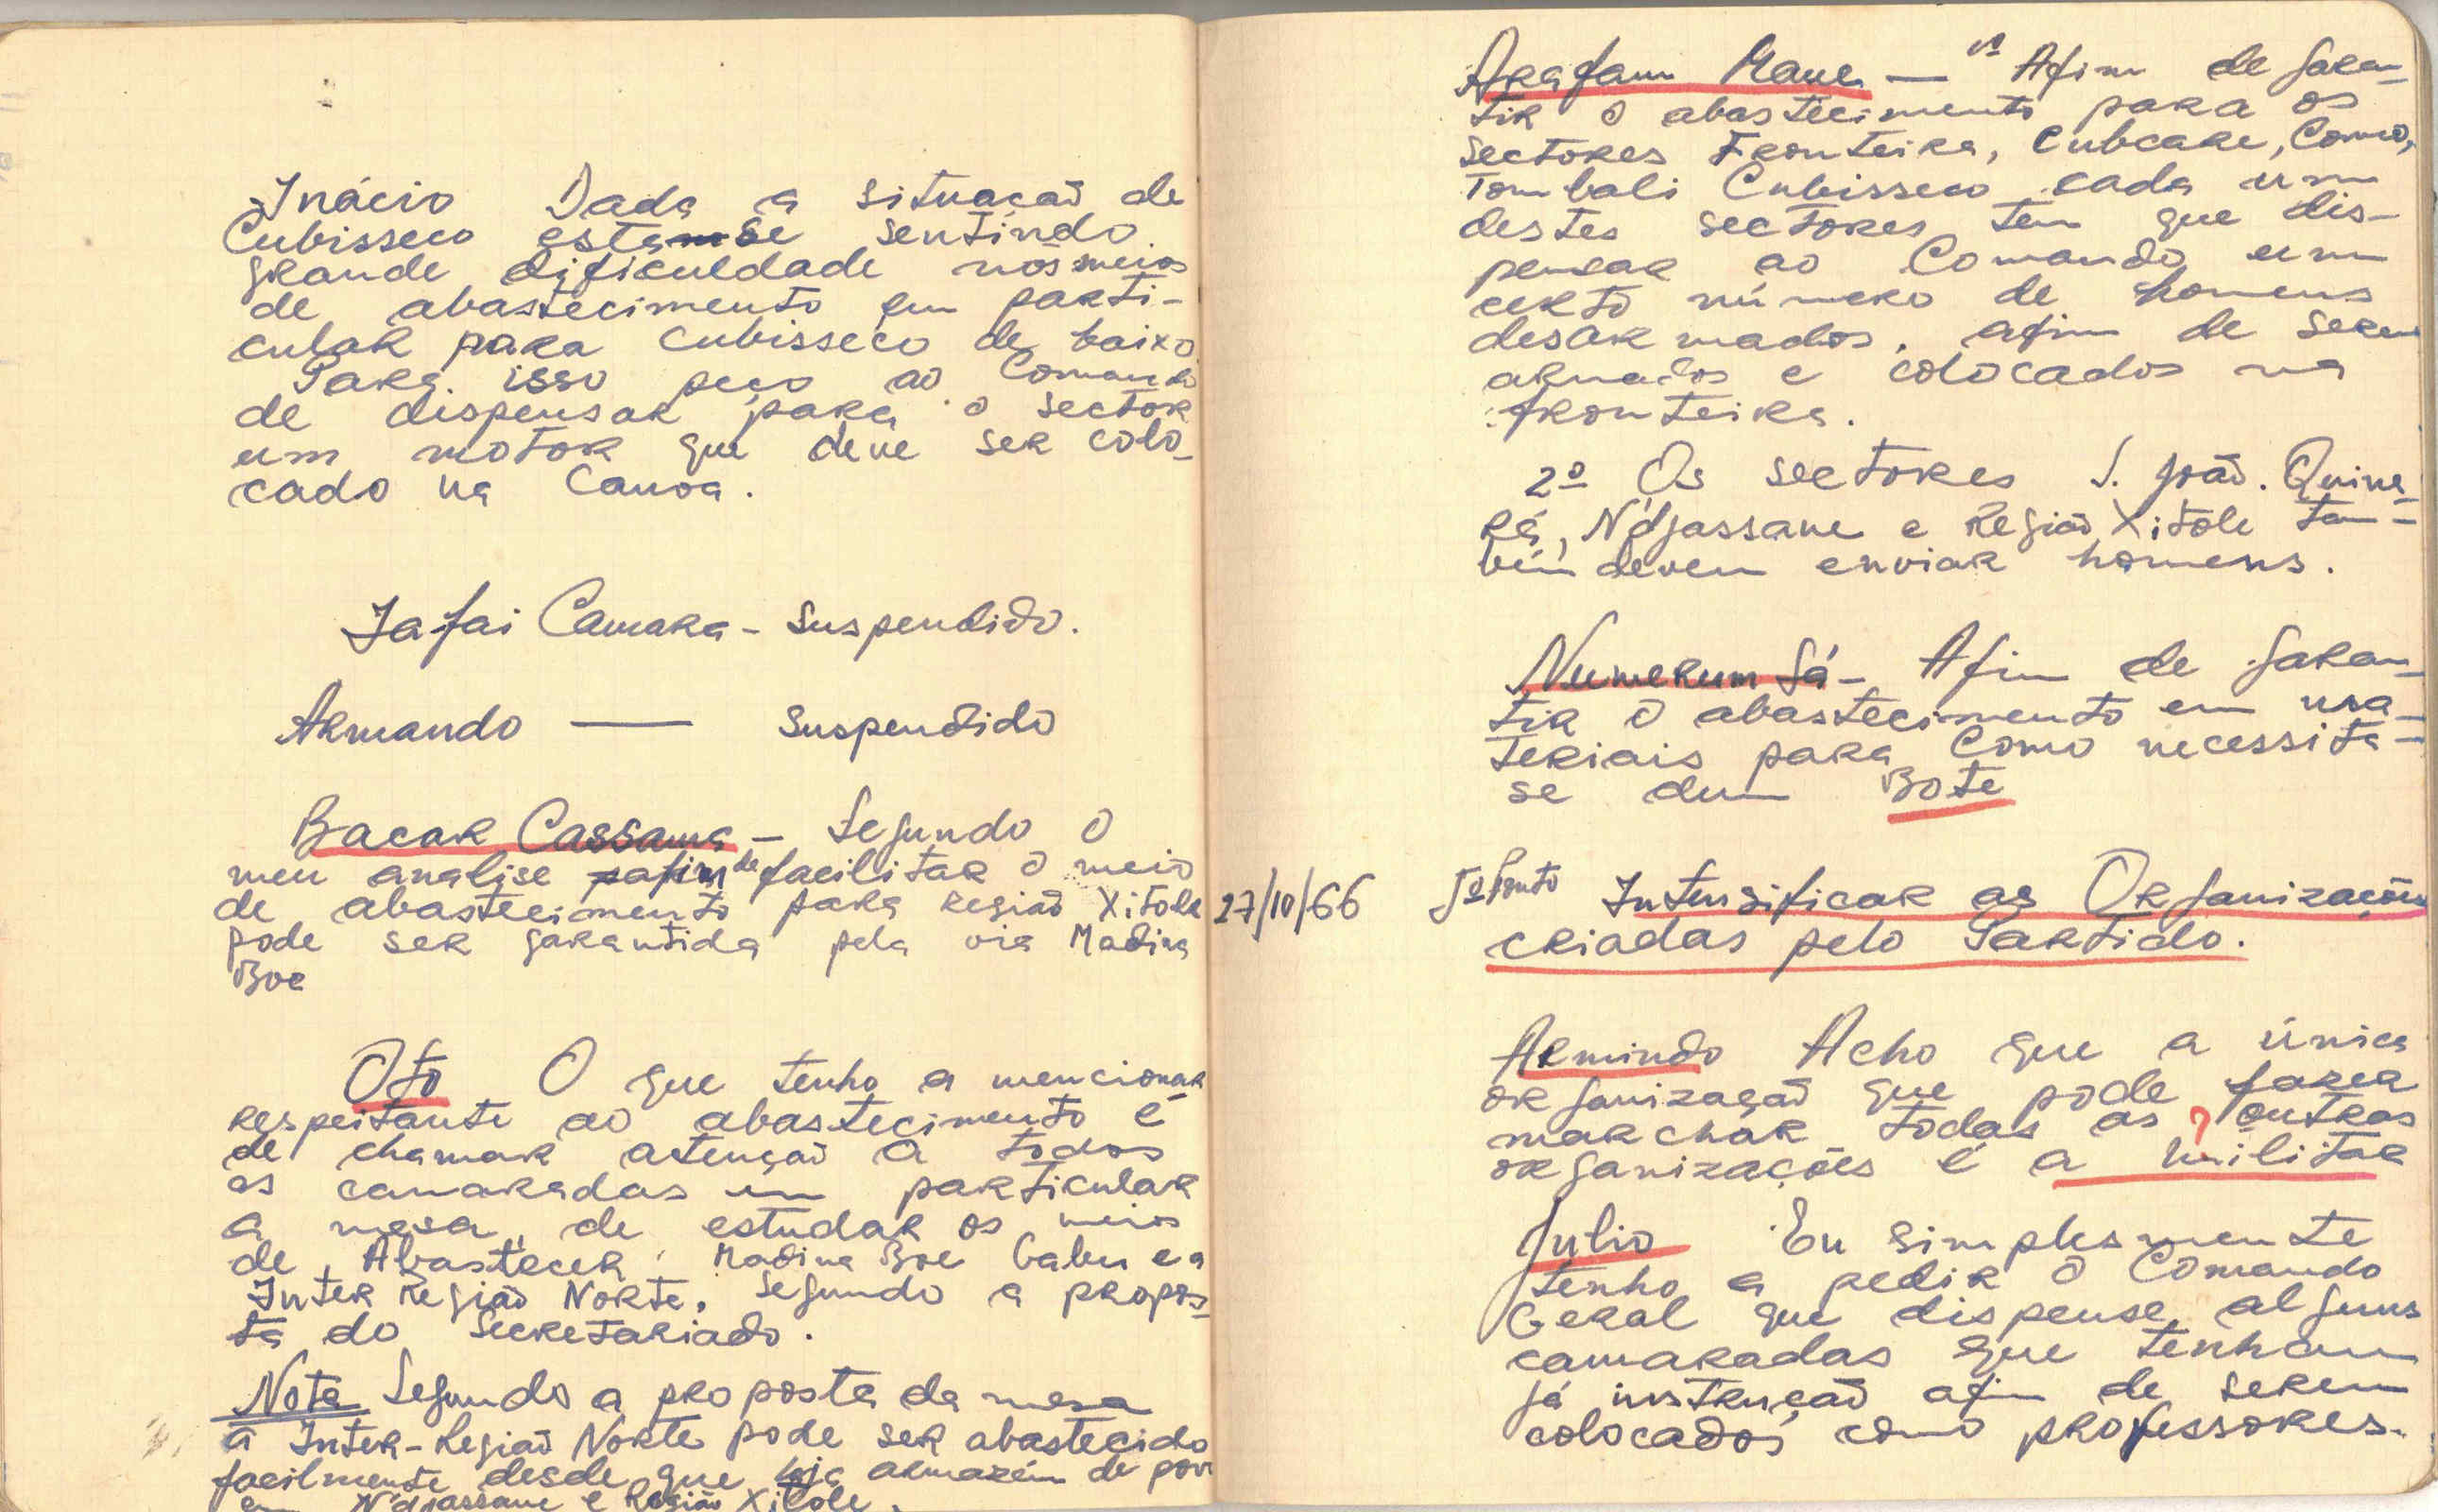 Inácio Dada a situação de
Cubisseco esta se sentindo
grande dificuldade nos meios
de abastecimento em parti-
cular para Cubisseco de baixo.
Para isso peço ao Comando
de dispensar para o sector
um motor que deve ser colo-
cado na Canoa.
Iafai Camara - Suspendido.
Armando — Suspendido
Bacar Cassama - Segundo o
meu analise afim de facilitar o meio
de abastecimento para Região Xitole
pode ser garantida pela via Madina
Boe
Oto O que tenho a mencionar
respeitante ao abastecimento é
de chamar atenção a todos
os camaradas em particular
a mesa, de estudar os meios
de Abastecer Madina Boe Gabu e a
Inter Região Norte, segundo a propos-
ta do Secretariado.
Nota Segundo a proposta da mesa
a Inter-Região Norte pode ser abastecido
facilmente desde que haja armazém de
em N'djassane e Região Xitole.
Arafam Mane — Afim de garan-
tir o abastecimento para os
sectores Fronteira, Cubcare, Como,
Tombali Cubisseco cada um
destes sectores tem que dis-
pensar ao Comando um
certo número de homens
desarmados, afim de serem
armados e colocados na
fronteira.
2º Os sectores S. João. Quina-
rá, N'djassane e Região Xitole tam-
bém devem enviar homens.
Numerum Gá - Afim de garan-
tir o abastecimento em ma-
teriais para Como necessita-
se dum Bote
27/10/66 Ponto Intensificar as Organizações
criadas pelo Partido.
Armindo Acho que a única
organização que pode fazer
marchar todas as ? outras
organizações é a militar
Julio Eu simplesmente
tenho a pedir o Comando
Geral que dispense alguns
camaradas que tenham
já instrução afim de serem
colocados como professores.